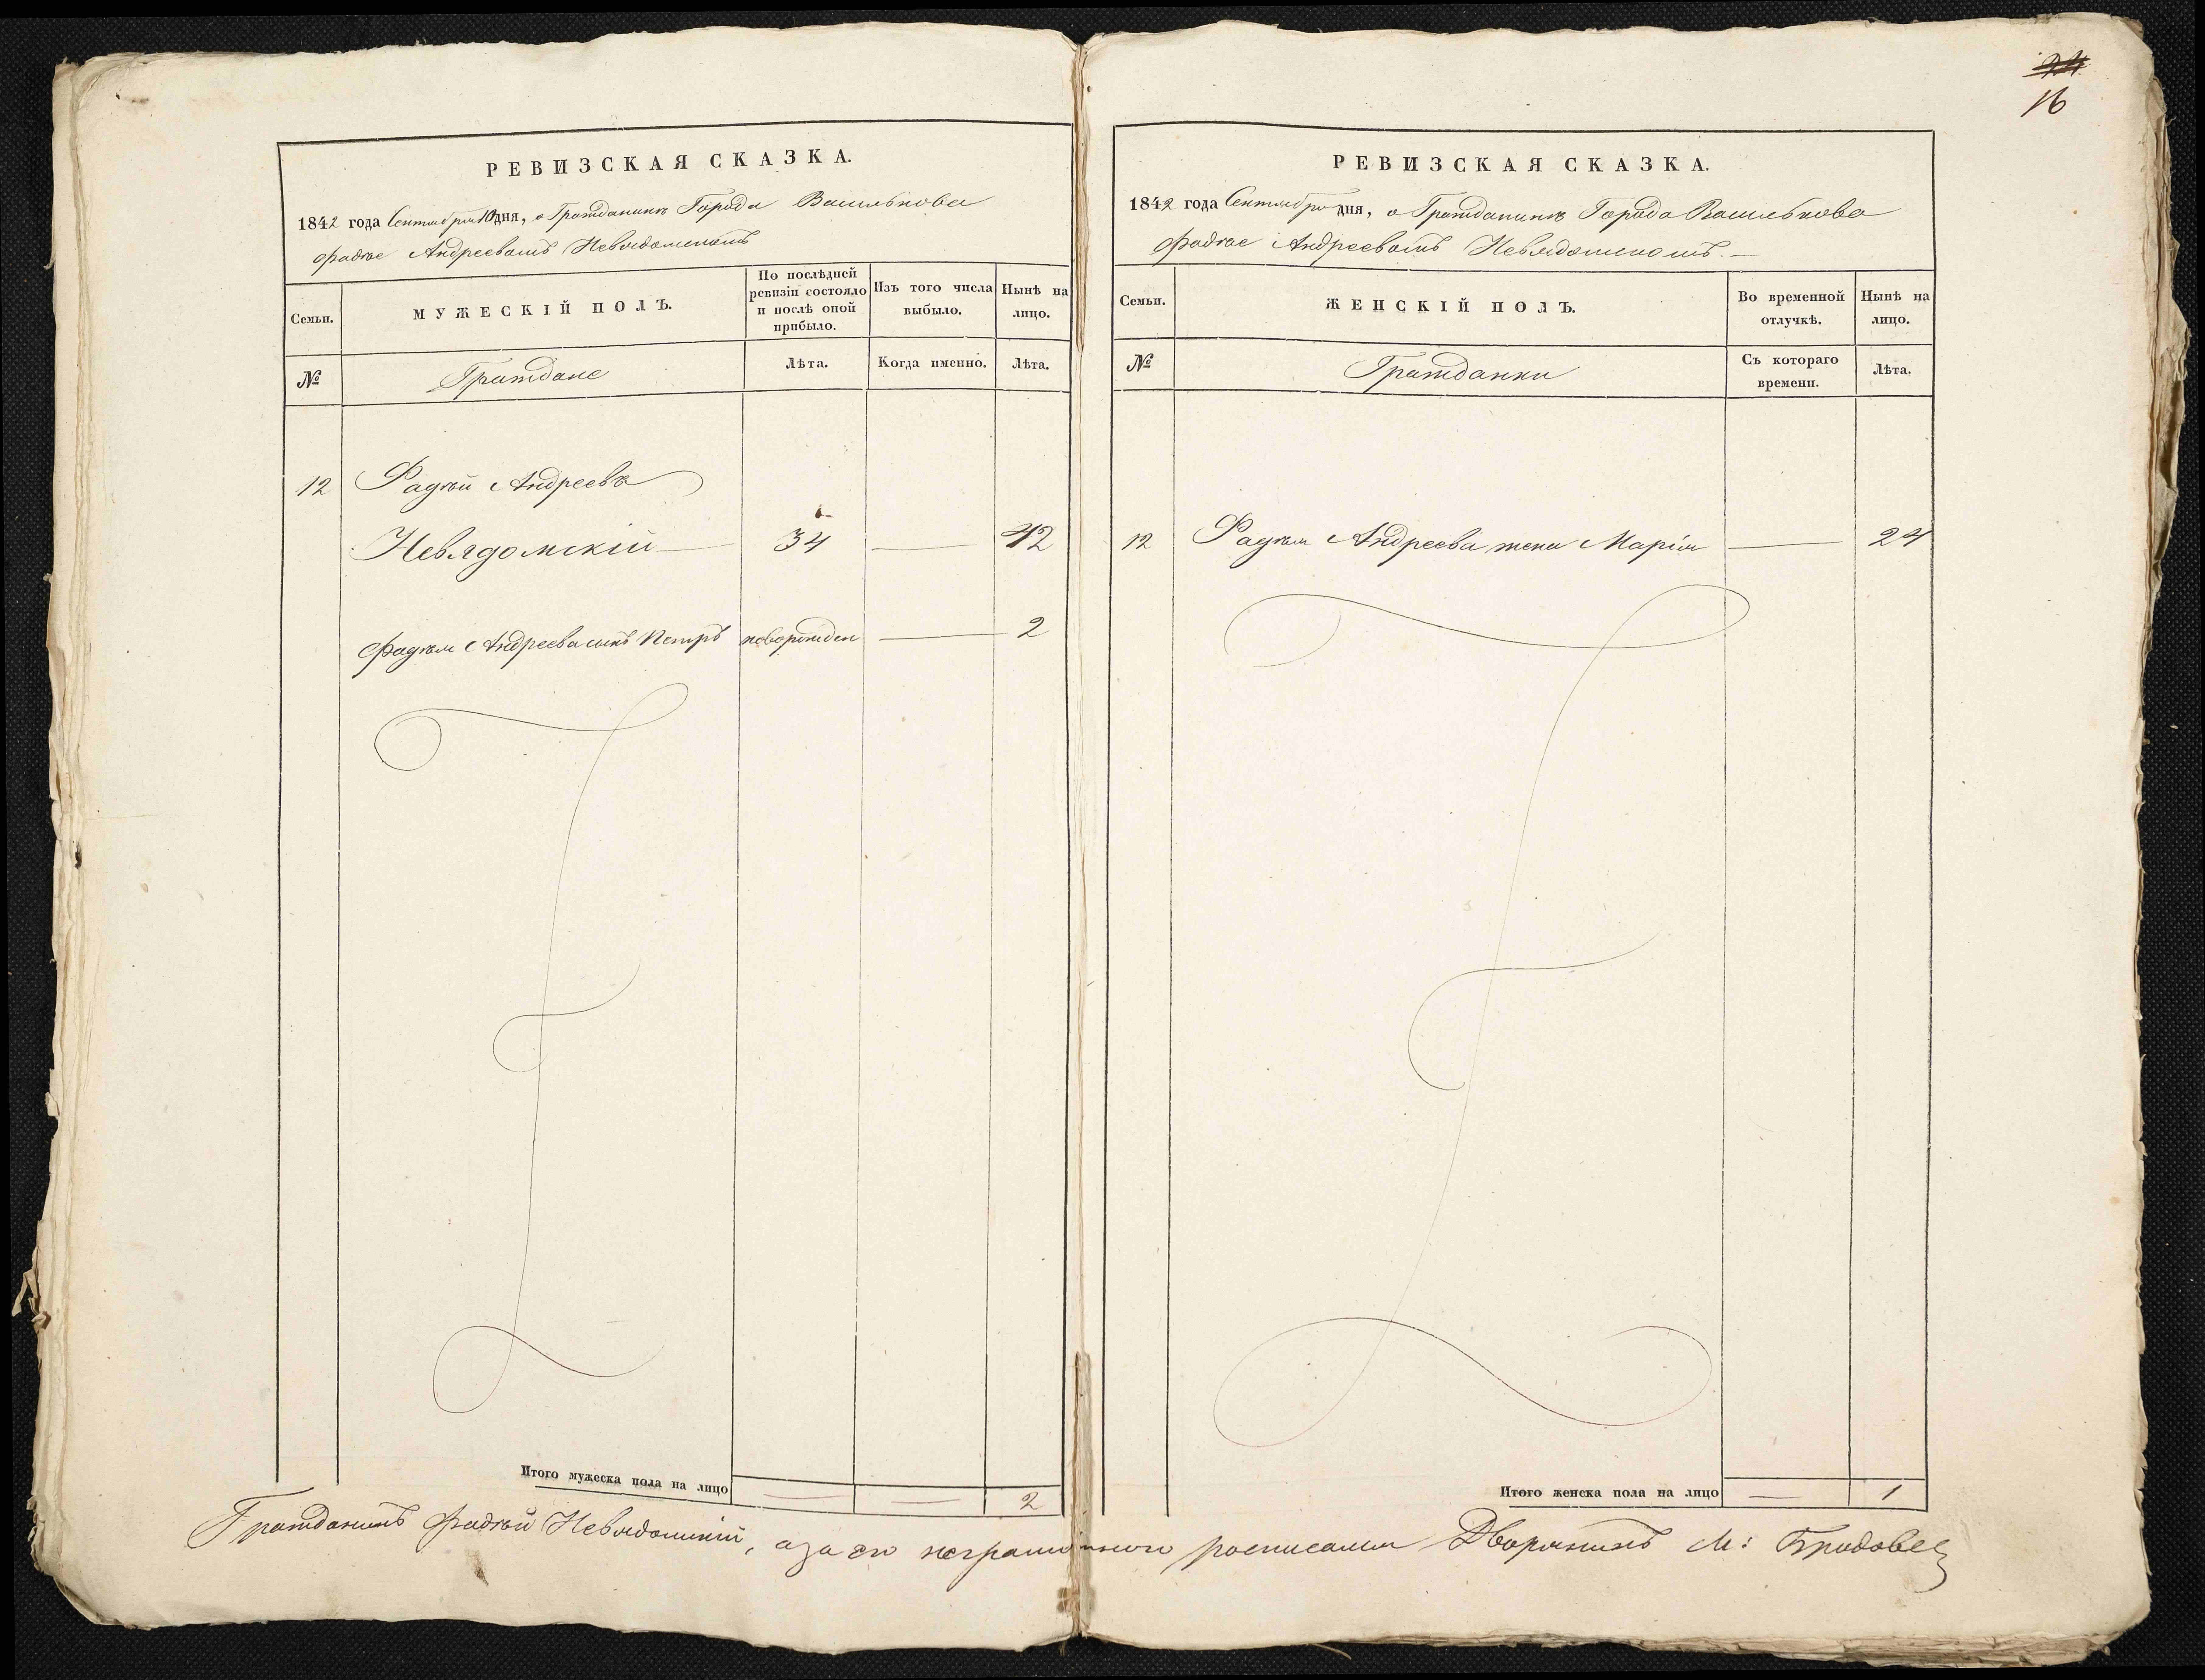 16
РЕВИЗСКАЯ СКАЗКА.
1842 года Сентября 10 дня, о Гражданинѣ Города Василькова
Фадѣе Андреевомъ Невядомскомъ
Семьи.
МУЖЕСКІЙ ПОЛЪ.
По послѣдней ревизіи состояло и послѣ оной прибыло.
Изъ того числа выбыло.
Нынѣ на лицо.
№
Граждане
Лѣта.
Когда именно.
Лѣта.
12 Фадѣй Андреевъ
Невядомскій 34 — 42
Фадѣя Андреева сынъ Петръ новорожден — 2
Итого мужеска пола на лицо — — 2
РЕВИЗСКАЯ СКАЗКА.
1842 года Сентября дня, о Гражданинѣ Города Василькова
Фадѣе Андреевомъ Невядомскомъ. —
Семьи.
ЖЕНСКІЙ ПОЛЪ.
Во временной отлучкѣ.
Нынѣ на лицо.
№
Гражданки
Съ котораго времени.
Лѣта.
12 Фадѣя Андреева жена Марія — 24
Итого женска пола на лицо — 1
Гражданинъ Фадѣй Невядомскій, а за его неграмотного росписался Дворянинъ М: Бродовс